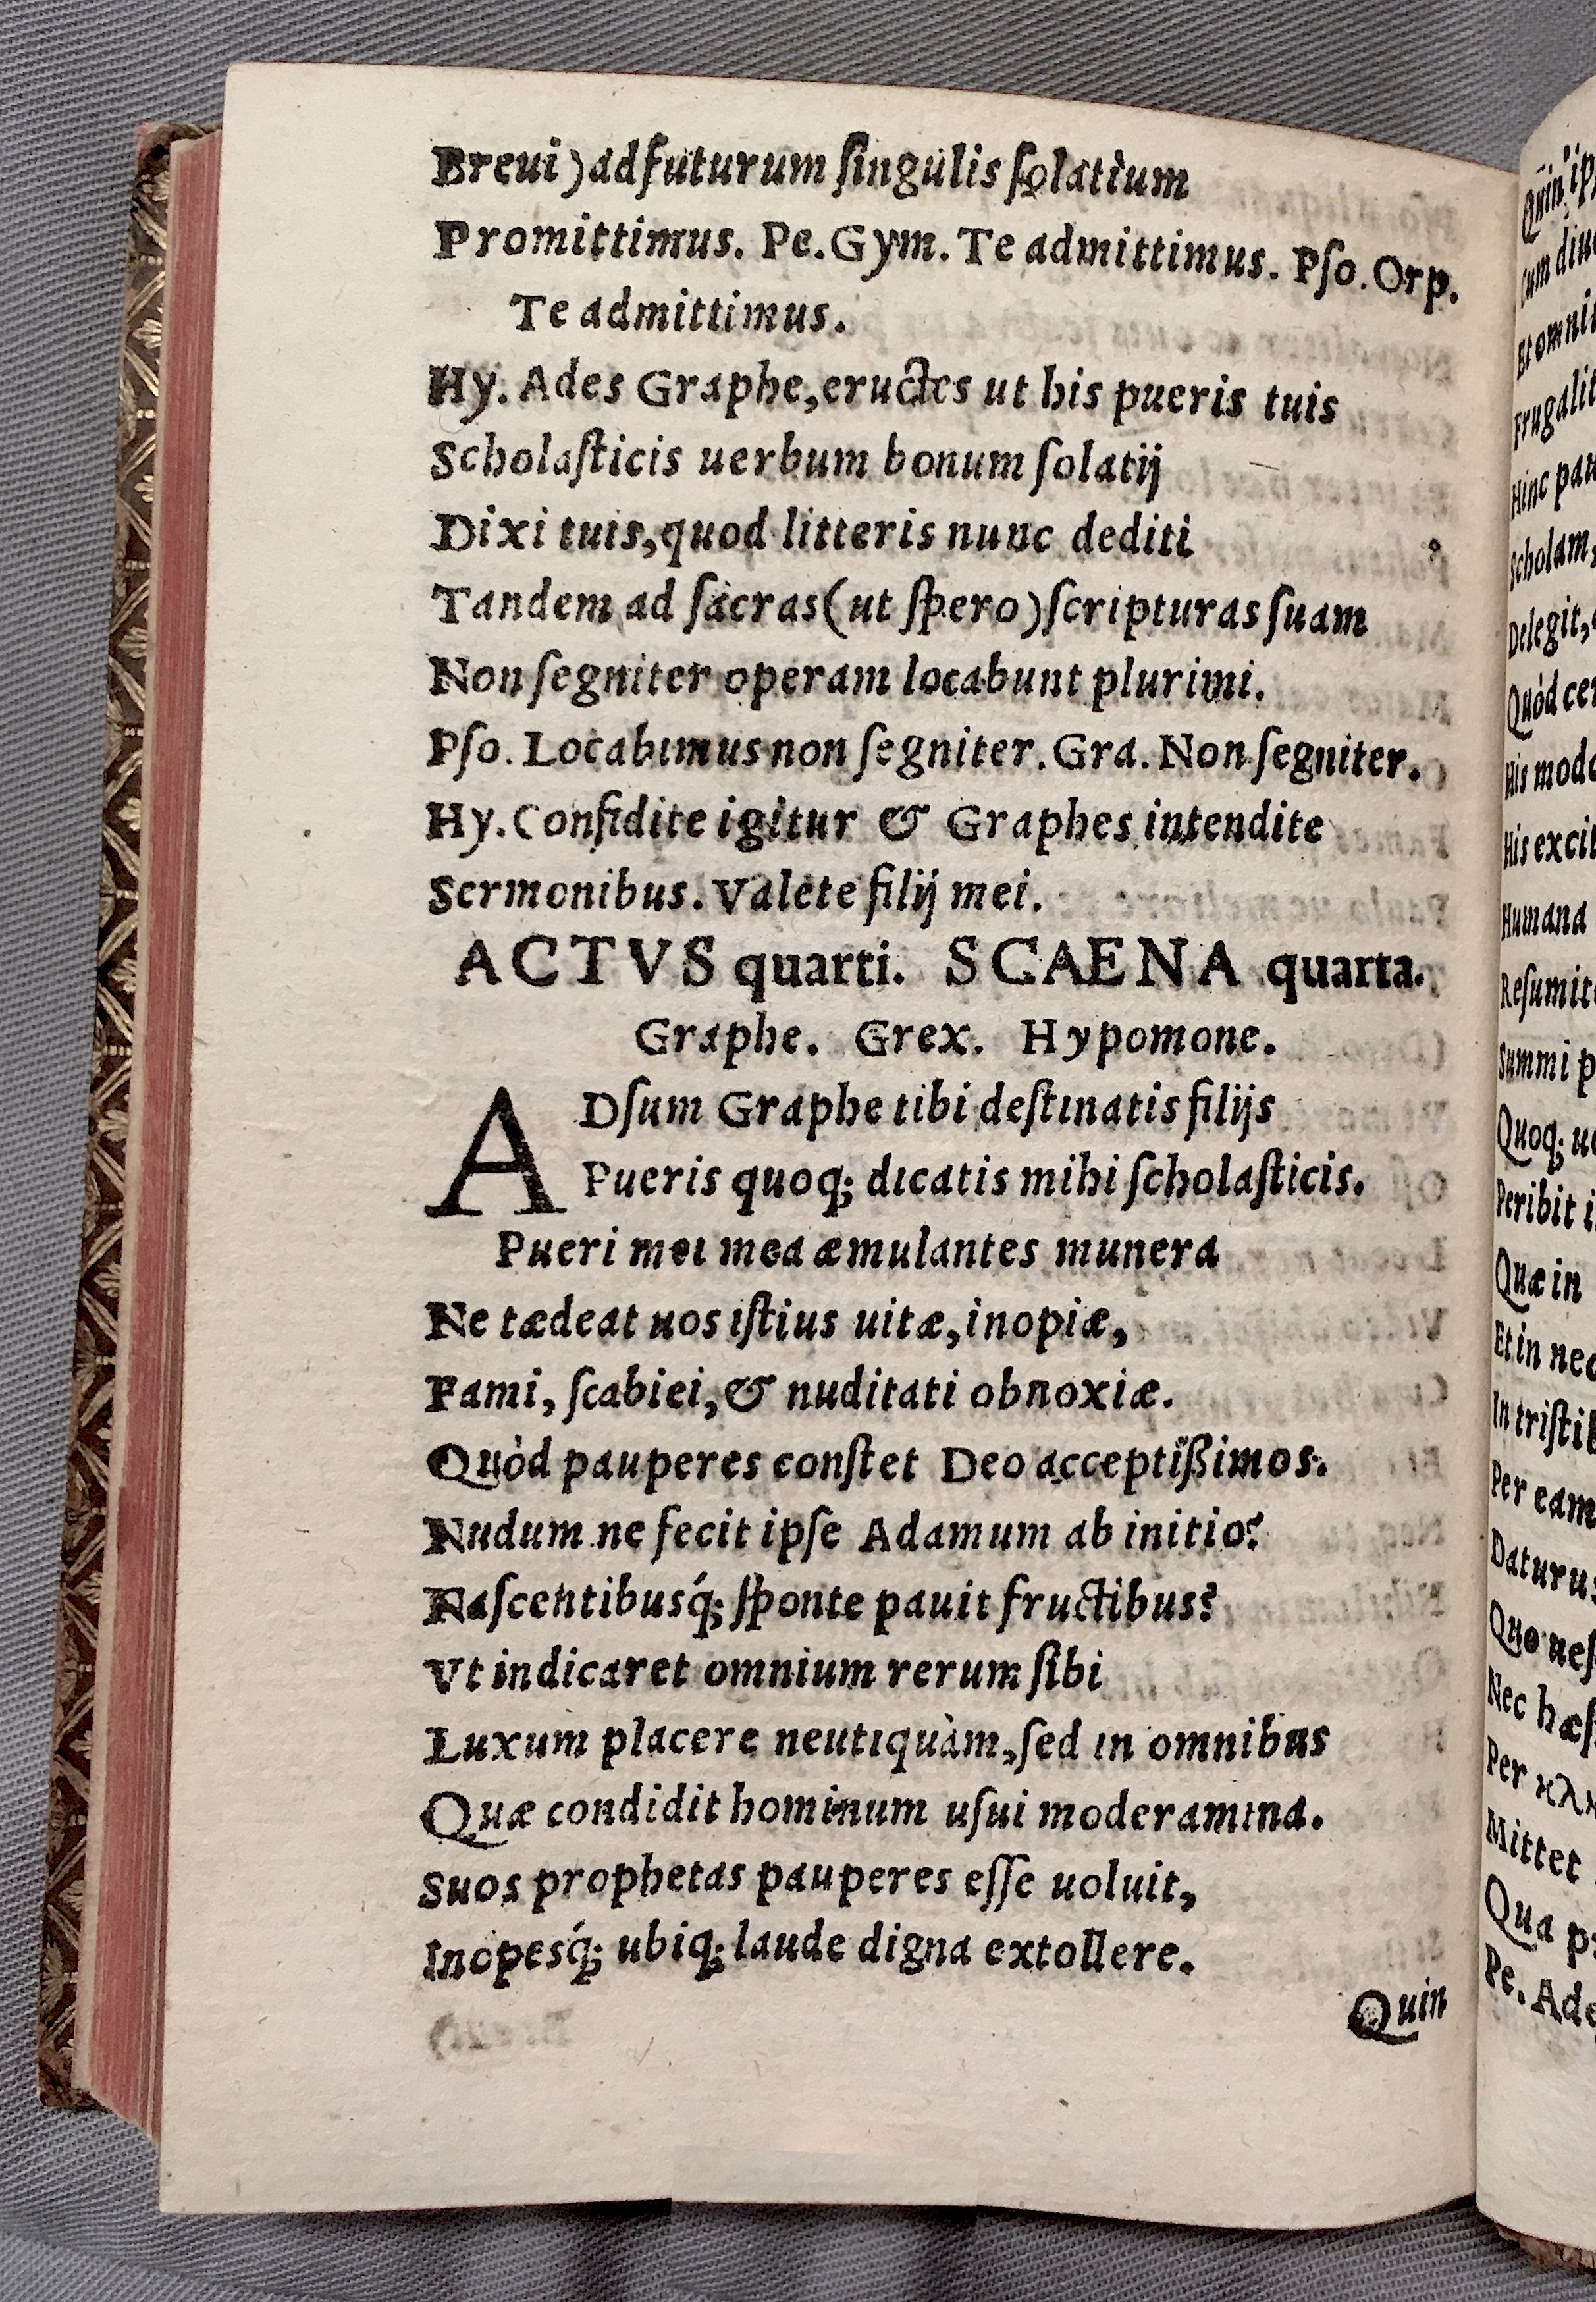 Breui) adfuturum ſingulis ſolatium
Promittimus. Pe. Gym. Te admittimus. Pſo. Orp.
Te admittimus.
Hy. Ades Graphe, eructes ut his pueris tuis
Scholaſticis uerbum bonum ſolatij
Dixi tuis, quod litteris nunc dediti
Tandem ad ſacras (ut ſpero) ſcripturas ſuam
Non ſegniter operam locabunt plurimi.
Pſo. Locabimus non ſegniter. Gra. Non ſegniter.
Hy. Confidite igitur & Graphes intendite
Sermonibus. Valete filij mei.
ACTVS quarti. SCAENA quarta.
Graphe. Grex. Hypomone.
ADſum Graphe tibi deſtinatis filijs
Pueris quoq; dicatis mihi ſcholaſticis.
Pueri mei mea æmulantes munera
Ne tædeat uos iſtius uitæ, inopiæ,
Fami, ſcabiei, & nuditati obnoxiæ.
Quòd pauperes conſtet Deo acceptißimos.
Nudum ne fecit ipſe Adamum ab initio?
Naſcentibusq́; ſponte pauit fructibus?
Vt indicaret omnium rerum ſibi
Luxum placere neutiquàm, ſed in omnibus
Quæ condidit hominum uſui moderamina.
Suos prophetas pauperes eſſe uoluit,
Inopesq́; ubiq; laude digna extollere.
Quin
Quin ip
Cum diu
Et omni
Frugalit
Hinc pau
Scholam,
Delegit,
Quòd cer
His modo
His exci
Humana
Reſumit
Summi p
Quoq; u
Peribit i
Quæ in
Et in nec
In triſti
Per eam
Daturus
Quo neſ
Nec hæſ
Per κλη
Mittet
Qua p
Pe. Ade